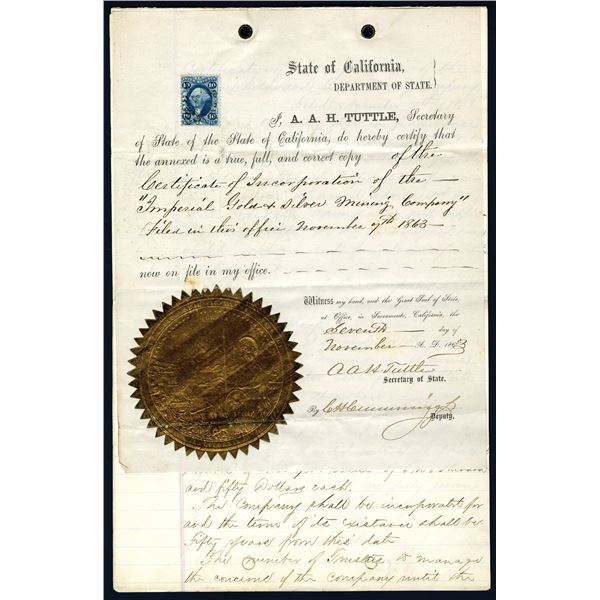 State of California,
DEPARTMENT OF STATE.
I, A. A. H. TUTTLE, Secretary
of State of the State of California, do hereby certify that
the annexed is a true, full, and correct copy of the
Certificate of Incorporation of the
"Imperial Gold & Silver Mining Company"
Filed in this office November 7th 1863
now on file in my office.
Witness my hand, and the Great Seal of State,
at Office, in Sacramento, California, the
Seventh day of
November A. D. 1863
A A H Tuttle
Secretary of State.
By C H Cummings
Deputy.
and fifty Dollars each.
The Company shall be incorporated for
and the term of its existance shall be
Fifty years from this date
The number of Trustees to manage
the concerns of the company until the